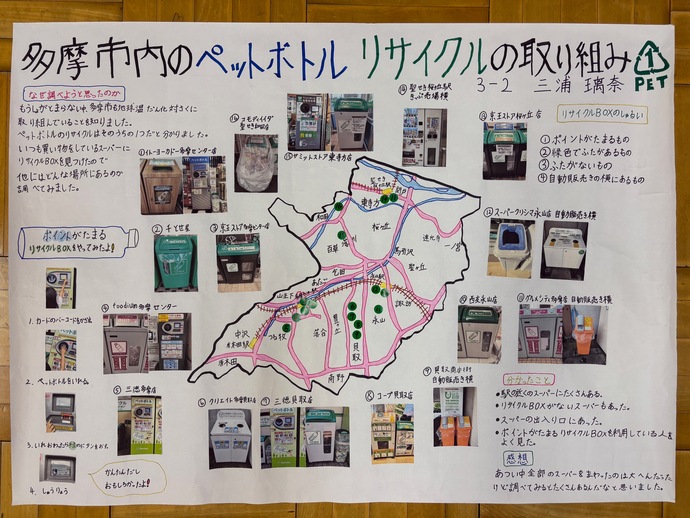 多摩市内のペットボトル リサイクルの取り組み
PET
3-2 三浦 璃奈
なぜ調べようと思ったのか
取り組んでいることを知りました。
ペットボトルのリサイクルはそのうちの1つだと分かりました。
いつも買い物をしているスーパーに
リサイクルBOXを見つけたので
他にはどんな場所にあるのか
調べてみました。
ポイントがたまる
リサイクルBOXをやってみたよ!
1. カードのバーコードをかざす
2. ペットボトルを1つ入れる
4. しゅうりょう
かんたんだし
おもしろかったよ!
①イトーヨーカドー多摩センター店
③京王ストア多摩センター店
④foodium多摩センター
⑤三徳多摩店
⑥クリエイト多摩貝取店
⑦三徳貝取店
⑧コープ貝取店
自動販売き横
⑩グルメシティ多摩店 自動販売き横
自動販売き横
⑬京王ストア桜ヶ丘店
きっぷ売場横
⑮サミットストア東寺方店
リサイクルBOXのしゅるい
①ポイントがたまるもの
②緑色でふたがあるもの
③ふたがないもの
④自動販売きの横にあるもの
和田
東寺方
関戸
百草
桜ヶ丘
連光寺
一ノ宮
馬引沢
聖ヶ丘
乞田
諏訪
永山
貝取
豊ヶ丘
落合
中沢
唐木田
南野
分かったこと
・駅の近くのスーパーにたくさんある。
・リサイクルBOXがないスーパーもあった。
・スーパーの出入り口にあった。
・ポイントがたまるリサイクルBOXを利用している人を
よく見た。
感想
あつい中全部のスーパーをまわったのは大へんだった
けど調べてみるとたくさんあるんだなと思いました。